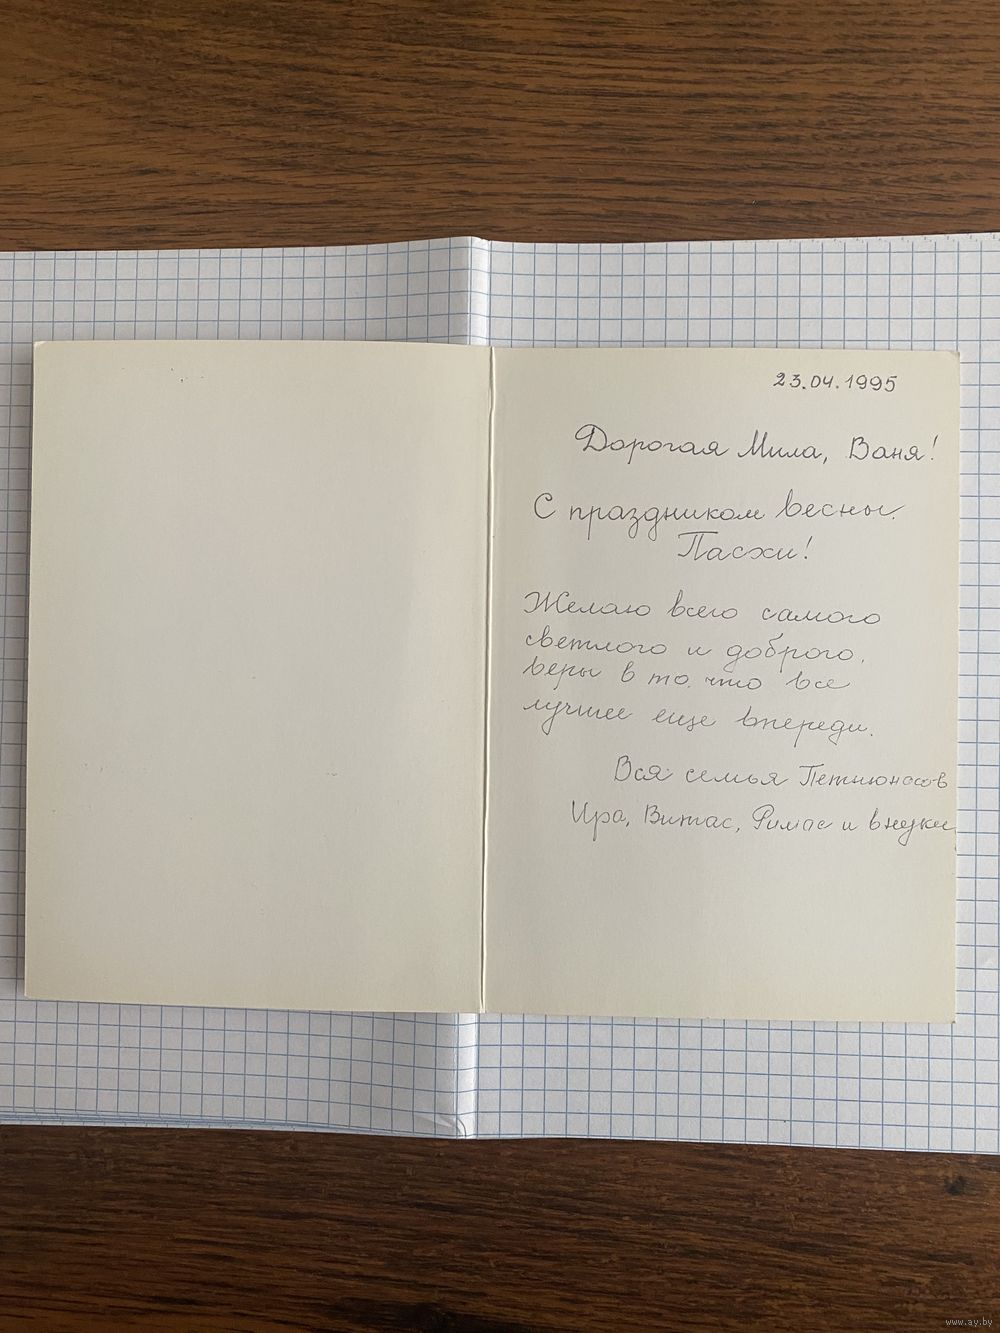 23.04.1995
Дорогая Мила, Ваня!
С праздником весны.
Пасхи!
Желаю всего самого
светлого и доброго,
веры в то, что все
лучшее еще впереди.
Вся семья Петнюнасов
Ира, Витас, Римас и внуки
www.ay.by